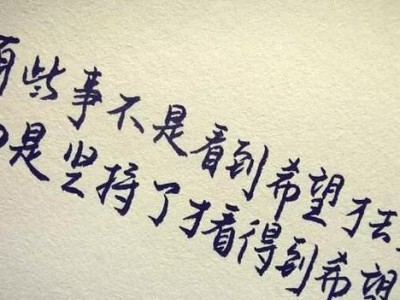 有些事不是看到希望才去
是坚持了才看得到希望